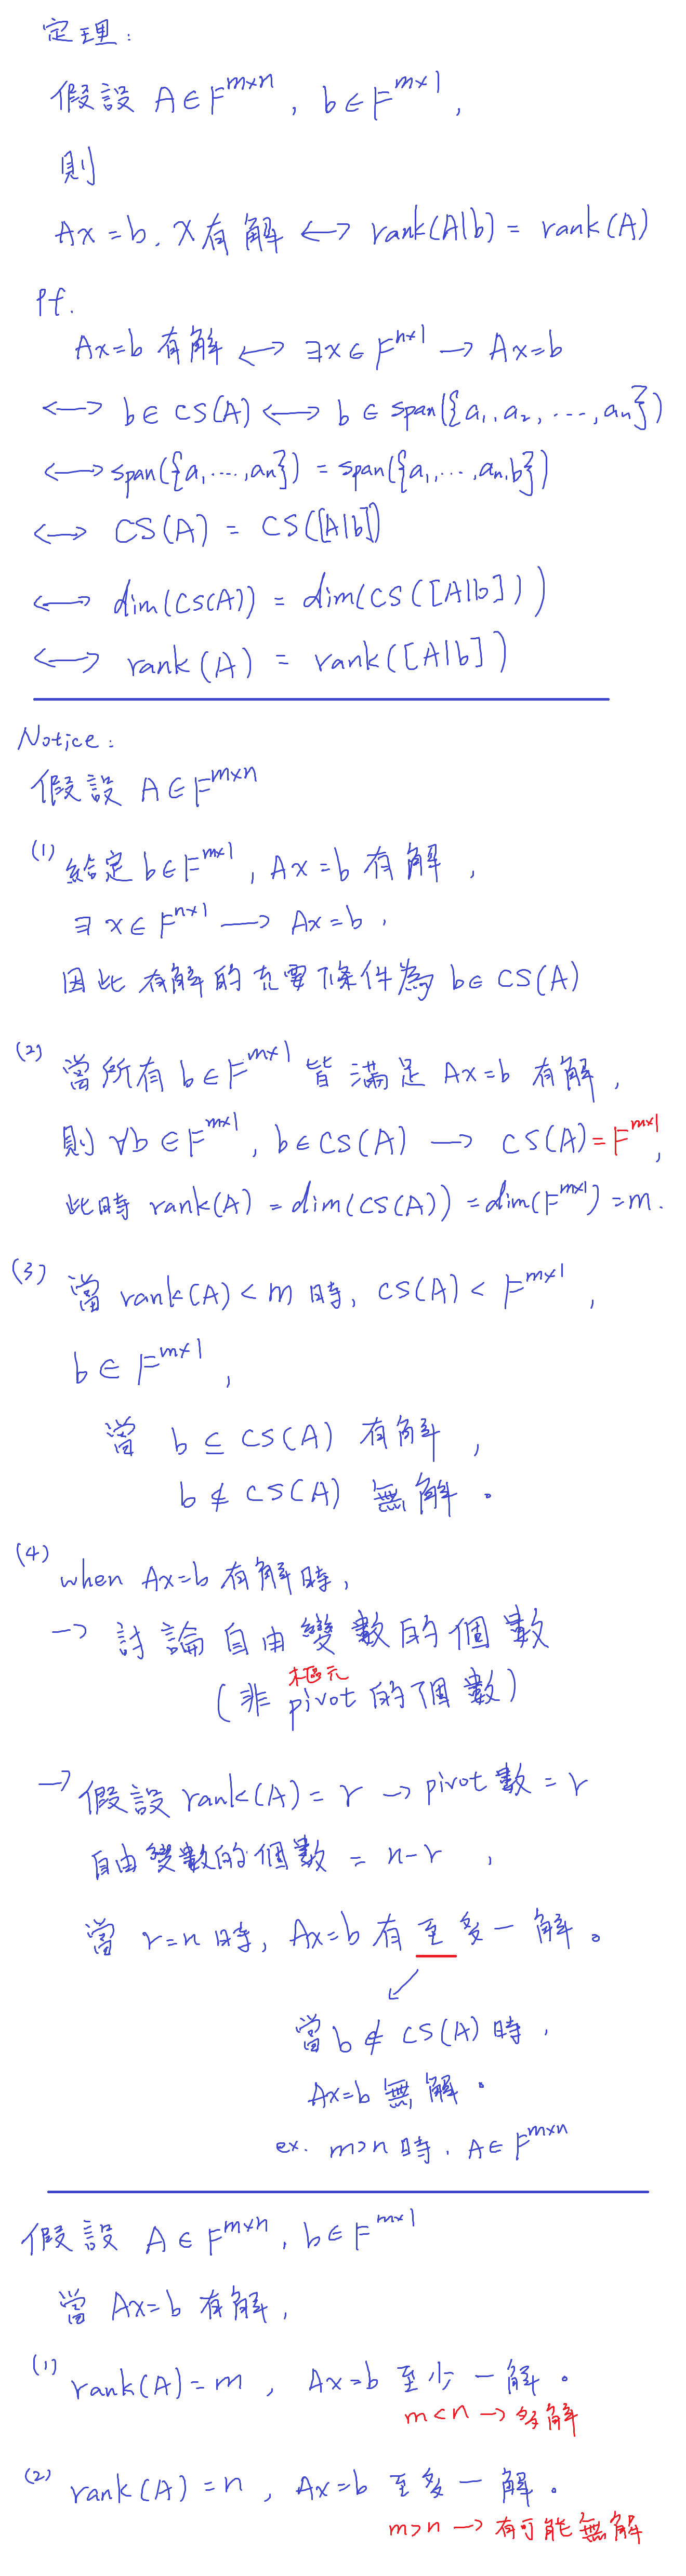 定理:
假設 A∈F^{m×n}, b∈F^{m×1},
則
Ax=b, x有解 ↔ rank(A|b) = rank(A)
pf.
Ax=b 有解 ↔ ∃x∈F^{n×1} → Ax=b
↔ b∈CS(A) ↔ b∈span({a₁,a₂,...,aₙ})
↔ span({a₁...,aₙ}) = span({a₁,...,aₙ,b})
↔ CS(A) = CS([A|b])
↔ dim(CS(A)) = dim(CS([A|b]))
↔ rank(A) = rank([A|b])
Notice:
假設 A∈F^{m×n}
(1) 給定 b∈F^{m×1}, Ax=b 有解,
∃x∈F^{n×1} → Ax=b,
因此 有解的充要條件為 b∈CS(A)
(2) 當所有 b∈F^{m×1} 皆滿足 Ax=b 有解,
則 ∀b∈F^{m×1}, b∈CS(A) → CS(A)=F^{m×1},
此時 rank(A) = dim(CS(A)) = dim(F^{m×1}) = m.
(3) 當 rank(A)<m 時, CS(A)<F^{m×1},
b∈F^{m×1},
當 b⊆CS(A) 有解,
b∉CS(A) 無解。
(4) when Ax=b 有解時,
→ 討論自由變數的個數
樞元
(非 pivot 的個數)
→ 假設 rank(A)=r → pivot 數=r
自由變數的個數 = n-r,
當 r=n 時, Ax=b 有至多一解。
當 b∉CS(A) 時,
Ax=b 無解。
ex. m>n 時, A∈F^{m×n}
假設 A∈F^{m×n}, b∈F^{m×1}
當 Ax=b 有解,
(1) rank(A)=m, Ax=b 至少一解。
m<n → 多解
(2) rank(A)=n, Ax=b 至多一解。
m>n → 有可能無解